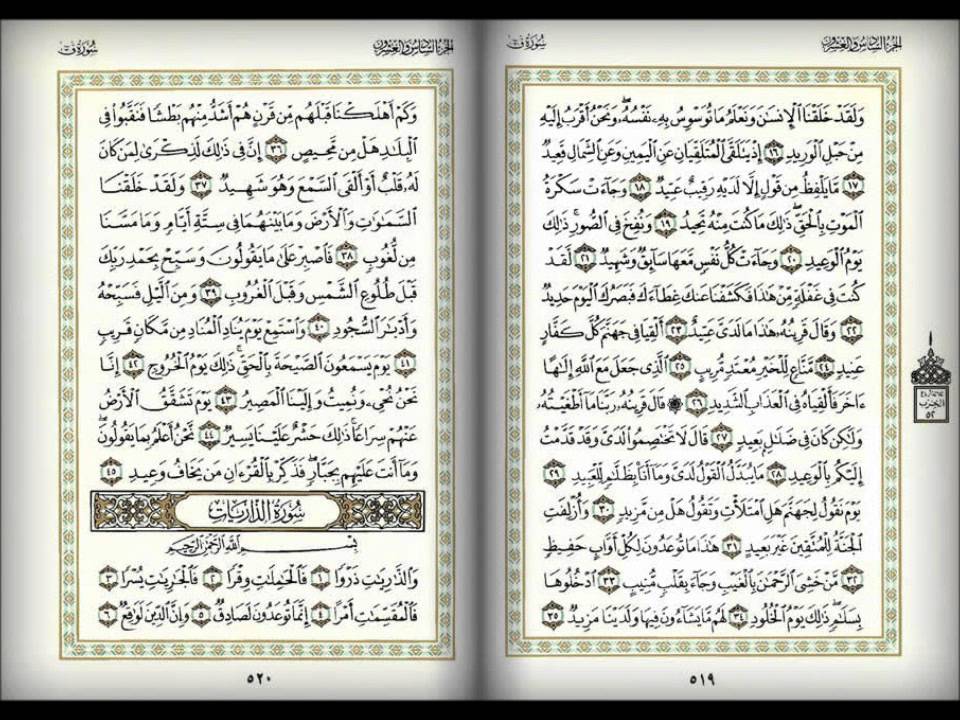 الجزء السادس والعشرون
سورة ق
وَلَقَدْ خَلَقْنَا ٱلْإِنسَٰنَ وَنَعْلَمُ مَا تُوَسْوِسُ بِهِۦ نَفْسُهُۥ ۖ وَنَحْنُ أَقْرَبُ إِلَيْهِ
مِنْ حَبْلِ ٱلْوَرِيدِ ١٦ إِذْ يَتَلَقَّى ٱلْمُتَلَقِّيَانِ عَنِ ٱلْيَمِينِ وَعَنِ ٱلشِّمَالِ قَعِيدٌ
١٧ مَّا يَلْفِظُ مِن قَوْلٍ إِلَّا لَدَيْهِ رَقِيبٌ عَتِيدٌ ١٨ وَجَآءَتْ سَكْرَةُ
ٱلْمَوْتِ بِٱلْحَقِّ ۖ ذَٰلِكَ مَا كُنتَ مِنْهُ تَحِيدُ ١٩ وَنُفِخَ فِى ٱلصُّورِ ۚ ذَٰلِكَ
يَوْمُ ٱلْوَعِيدِ ٢٠ وَجَآءَتْ كُلُّ نَفْسٍ مَّعَهَا سَآئِقٌ وَشَهِيدٌ ٢١ لَّقَدْ
كُنتَ فِى غَفْلَةٍ مِّنْ هَٰذَا فَكَشَفْنَا عَنكَ غِطَآءَكَ فَبَصَرُكَ ٱلْيَوْمَ حَدِيدٌ
٢٢ وَقَالَ قَرِينُهُۥ هَٰذَا مَا لَدَىَّ عَتِيدٌ ٢٣ أَلْقِيَا فِى جَهَنَّمَ كُلَّ كَفَّارٍ
عَنِيدٍ ٢٤ مَّنَّاعٍ لِّلْخَيْرِ مُعْتَدٍ مُّرِيبٍ ٢٥ ٱلَّذِى جَعَلَ مَعَ ٱللَّهِ إِلَٰهًا
ءَاخَرَ فَأَلْقِيَاهُ فِى ٱلْعَذَابِ ٱلشَّدِيدِ ٢٦ ۞ قَالَ قَرِينُهُۥ رَبَّنَا مَآ أَطْغَيْتُهُۥ
وَلَٰكِن كَانَ فِى ضَلَٰلٍۭ بَعِيدٍ ٢٧ قَالَ لَا تَخْتَصِمُوا۟ لَدَىَّ وَقَدْ قَدَّمْتُ
إِلَيْكُم بِٱلْوَعِيدِ ٢٨ مَا يُبَدَّلُ ٱلْقَوْلُ لَدَىَّ وَمَآ أَنَا۠ بِظَلَّٰمٍ لِّلْعَبِيدِ ٢٩
يَوْمَ نَقُولُ لِجَهَنَّمَ هَلِ ٱمْتَلَأْتِ وَتَقُولُ هَلْ مِن مَّزِيدٍ ٣٠ وَأُزْلِفَتِ
ٱلْجَنَّةُ لِلْمُتَّقِينَ غَيْرَ بَعِيدٍ ٣١ هَٰذَا مَا تُوعَدُونَ لِكُلِّ أَوَّابٍ حَفِيظٍ
٣٢ مَّنْ خَشِىَ ٱلرَّحْمَٰنَ بِٱلْغَيْبِ وَجَآءَ بِقَلْبٍ مُّنِيبٍ ٣٣ ٱدْخُلُوهَا
بِسَلَٰمٍ ۖ ذَٰلِكَ يَوْمُ ٱلْخُلُودِ ٣٤ لَهُم مَّا يَشَآءُونَ فِيهَا وَلَدَيْنَا مَزِيدٌ ٣٥
٥١٩
الحزب
٥٢
الجزء السادس والعشرون
سورة ق
وَكَمْ أَهْلَكْنَا قَبْلَهُم مِّن قَرْنٍ هُمْ أَشَدُّ مِنْهُم بَطْشًا فَنَقَّبُوا۟ فِى
ٱلْبِلَٰدِ هَلْ مِن مَّحِيصٍ ٣٦ إِنَّ فِى ذَٰلِكَ لَذِكْرَىٰ لِمَن كَانَ
لَهُۥ قَلْبٌ أَوْ أَلْقَى ٱلسَّمْعَ وَهُوَ شَهِيدٌ ٣٧ وَلَقَدْ خَلَقْنَا
ٱلسَّمَٰوَٰتِ وَٱلْأَرْضَ وَمَا بَيْنَهُمَا فِى سِتَّةِ أَيَّامٍ وَمَا مَسَّنَا
مِن لُّغُوبٍ ٣٨ فَٱصْبِرْ عَلَىٰ مَا يَقُولُونَ وَسَبِّحْ بِحَمْدِ رَبِّكَ
قَبْلَ طُلُوعِ ٱلشَّمْسِ وَقَبْلَ ٱلْغُرُوبِ ٣٩ وَمِنَ ٱلَّيْلِ فَسَبِّحْهُ
وَأَدْبَٰرَ ٱلسُّجُودِ ٤٠ وَٱسْتَمِعْ يَوْمَ يُنَادِ ٱلْمُنَادِ مِن مَّكَانٍ قَرِيبٍ
٤١ يَوْمَ يَسْمَعُونَ ٱلصَّيْحَةَ بِٱلْحَقِّ ۚ ذَٰلِكَ يَوْمُ ٱلْخُرُوجِ ٤٢ إِنَّا
نَحْنُ نُحْىِۦ وَنُمِيتُ وَإِلَيْنَا ٱلْمَصِيرُ ٤٣ يَوْمَ تَشَقَّقُ ٱلْأَرْضُ
عَنْهُمْ سِرَاعًا ۚ ذَٰلِكَ حَشْرٌ عَلَيْنَا يَسِيرٌ ٤٤ نَّحْنُ أَعْلَمُ بِمَا يَقُولُونَ ۖ
وَمَآ أَنتَ عَلَيْهِم بِجَبَّارٍ ۖ فَذَكِّرْ بِٱلْقُرْءَانِ مَن يَخَافُ وَعِيدِ ٤٥
سُورَةُ الذَّارِيَاتِ
بِسْمِ ٱللَّهِ ٱلرَّحْمَٰنِ ٱلرَّحِيمِ
وَٱلذَّٰرِيَٰتِ ذَرْوًا ١ فَٱلْحَٰمِلَٰتِ وِقْرًا ٢ فَٱلْجَٰرِيَٰتِ يُسْرًا ٣
فَٱلْمُقَسِّمَٰتِ أَمْرًا ٤ إِنَّمَا تُوعَدُونَ لَصَادِقٌ ٥ وَإِنَّ ٱلدِّينَ لَوَٰقِعٌ ٦
٥٢٠